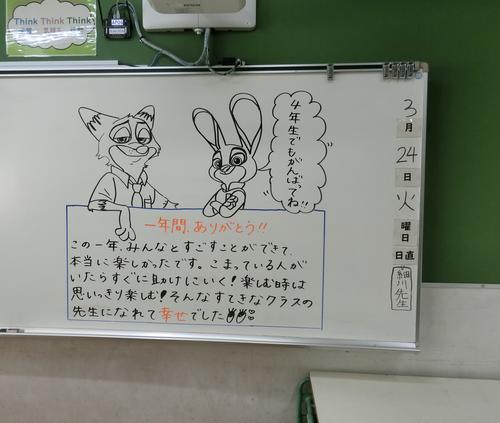 Think Think Think
4年生でもがんばってね!!
3
月
24
日
火
曜
日
日直
細川先生
一年間、ありがとう!!
この一年、みんなとすごすことができて、
本当に楽しかったです。こまっている人が
いたらすぐに助けにいく!楽しむ時は
思いっきり楽しむ!そんなすてきなクラスの
先生になれて幸せでした